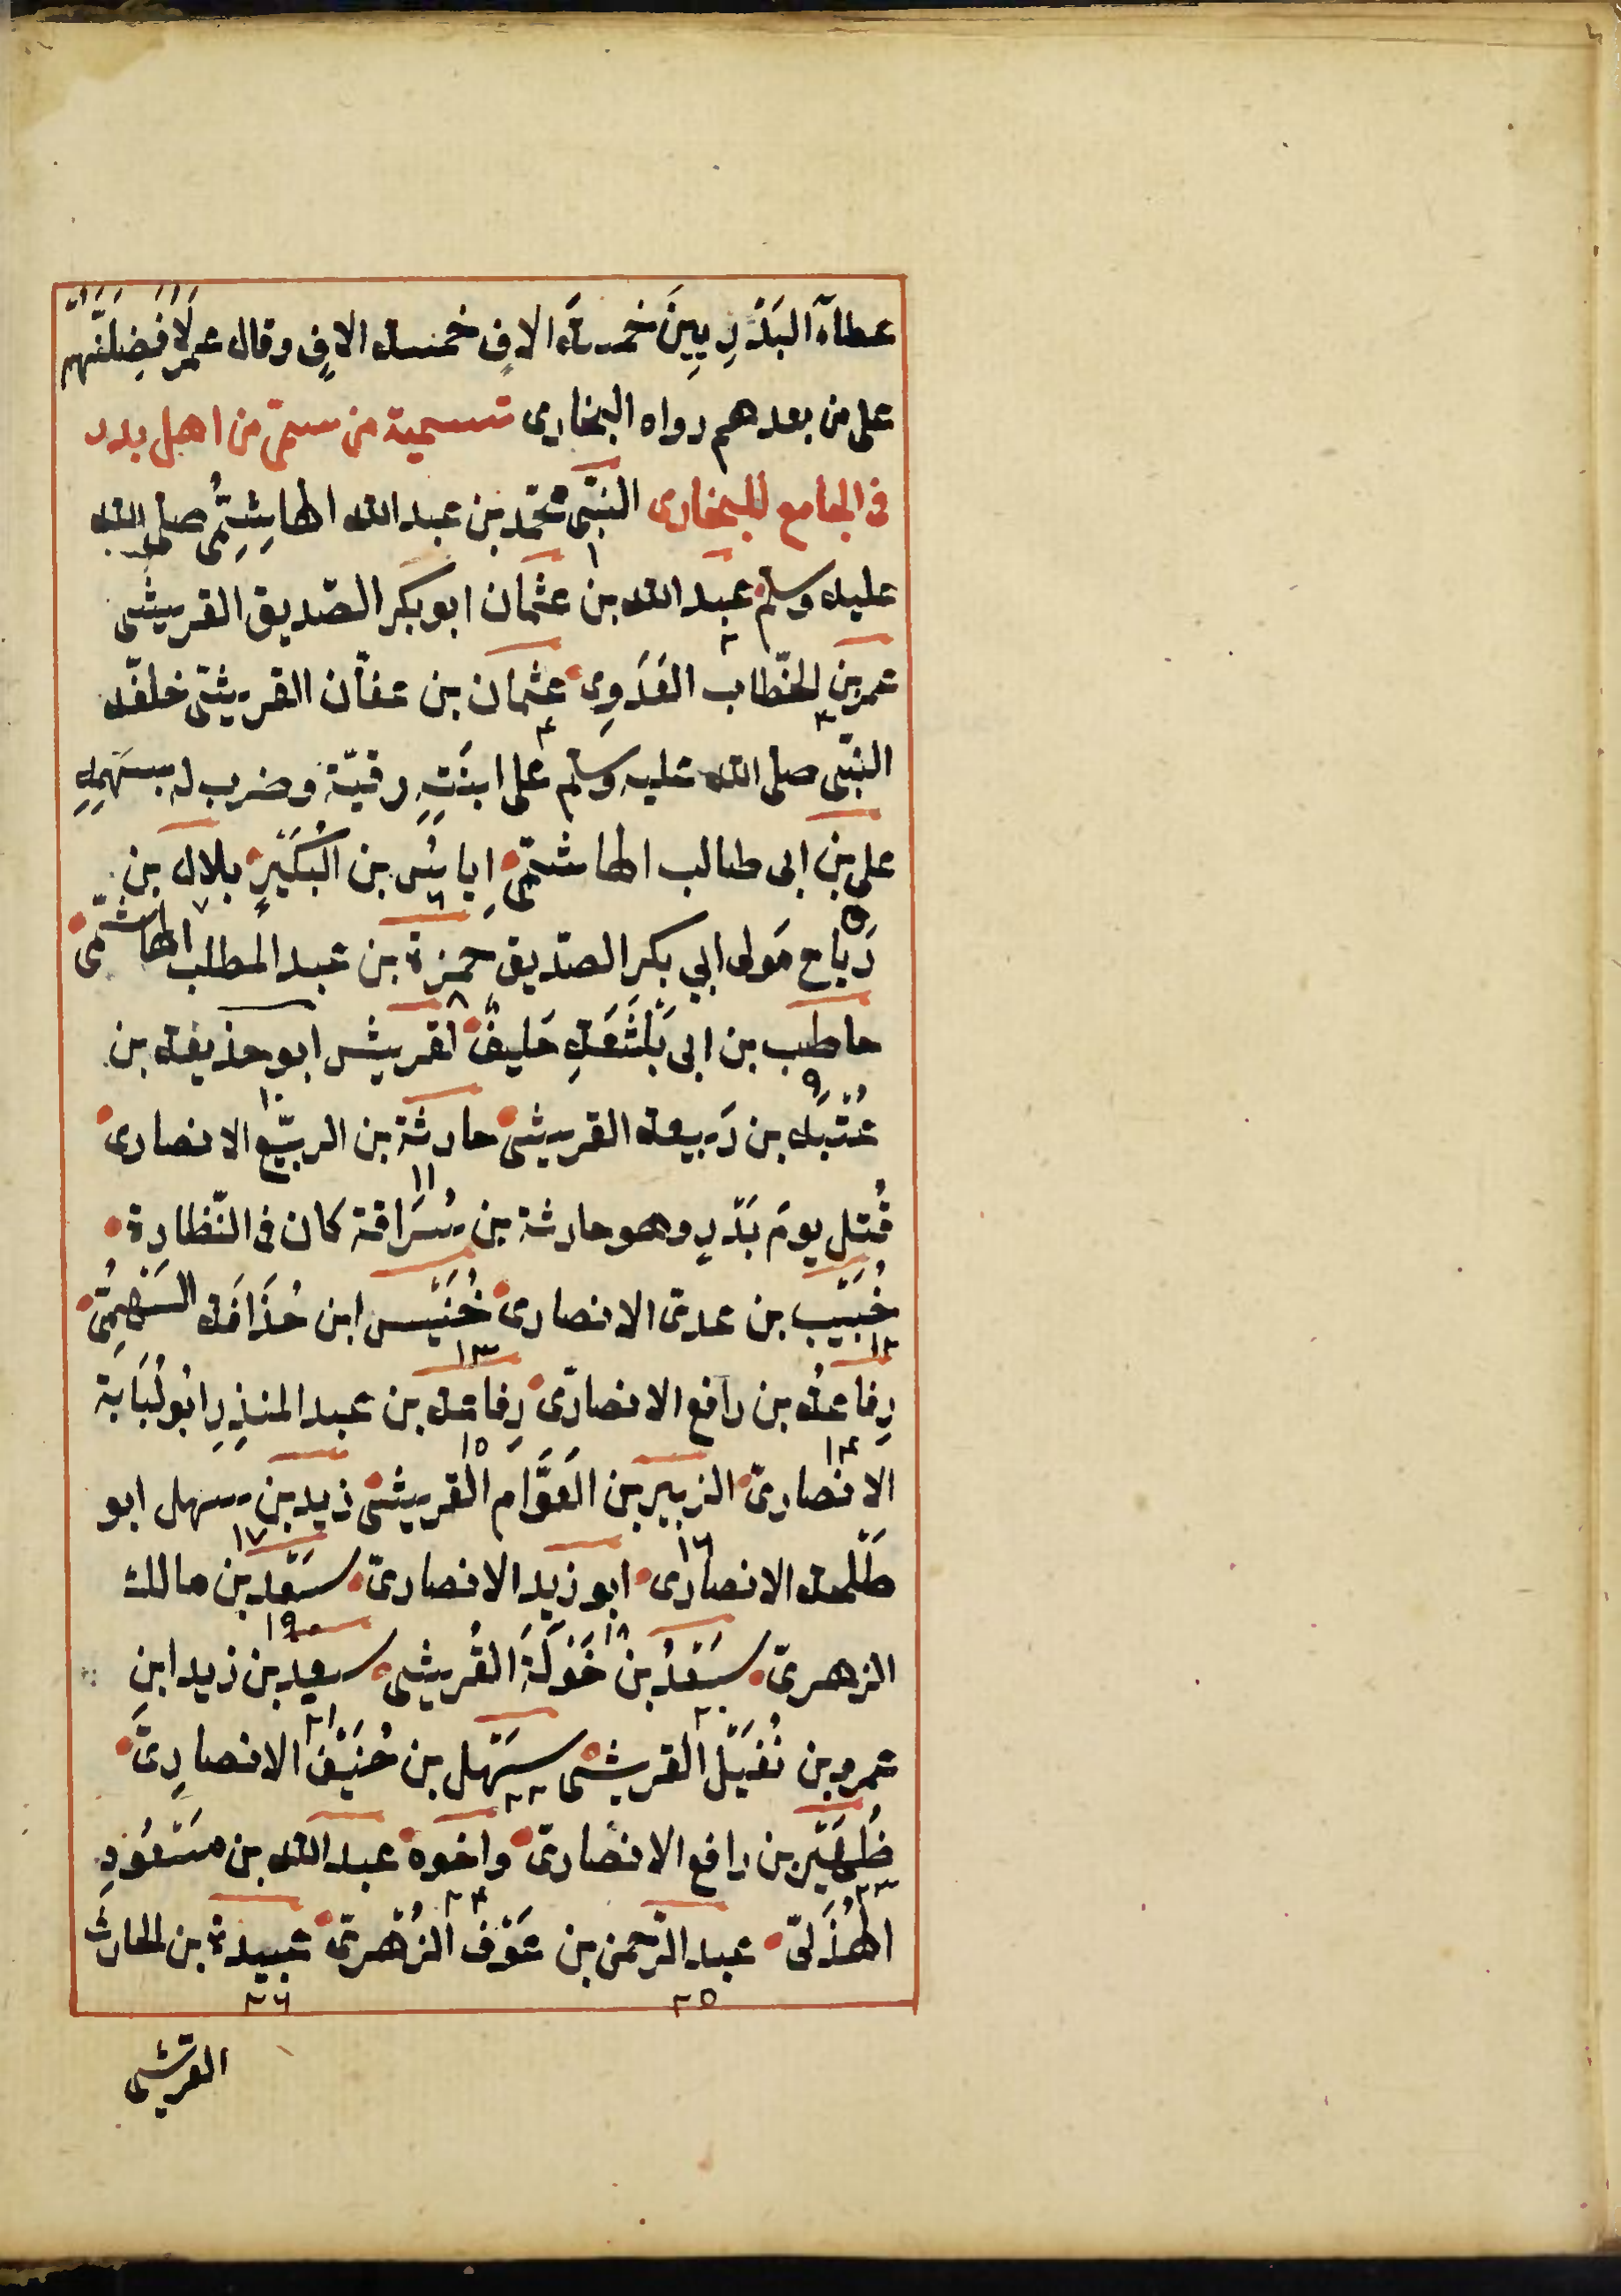 عطاءَ البَدْرِيِينَ خمسةَ الافٍ خمسة الافٍ وقال عمر لَاُفَضِّلَنَّهُم
على من بعدهم رواه البخارى تسمية من سمّى من اهل بدر
فى الجامع للبخارى النبّى محمّد بن عبد الله الهاشِمّىُ صلى الله
عليه وسلم عبد الله بن عثمان ابو بكر الصّديق القريشى
عمر بن الخطّاب العَدَوِى عثمان بن عفّان القريشى خلفّه
النبّى صلى الله عليه وسلم على ابنَتِهِ رقيّة وضرب له بسَهمِهِ
على بن ابى طالب الهاشمّى اِياسُ بن البُكَيْرِ بلال بن
رَباح مَولى ابي بكر الصدّيق حمزة بن عبد المطلب الهاشمّى
حاطب بن ابى بَلْتَعَةِ حَليفٌ لقريش ابو حذيفة بن
عُتْبَة بن رَبيعة القريشى حارثة بن الربيّع الانصارى
قُتِل يومَ بَدْرٍ وهو حارثة بن سُرَاقة كان فى النّظارة
خُبَيْب بن عدىّ الانصارى خُنَيْس ابن حُذَافَة السَهْمِىُّ
رِفاعةُ بن رافع الانصارىّ رِفاعة بن عبد المنذِرِ ابُو لُبَابَة
الانصارىّ الزبير بن العَوَّام القريشى زيد بن سهل ابو
طَلْحة الانصارى ابو زيد الانصارىّ سَعْد بن مالك
الزهرىّ سَعْدُ بن خَوْلَةَ القُريشى سعيد بن زيد ابنِ
عمرو بن نُفَيْل القريشى سَهْل بن حُنَيْف الانصارِىّ
ظُهَيْر بن رافع الانصارىّ واخوه عبد الله بن مَسْعُودٍ
الهُذَلىّ عبد الرّحمن بن عَوْف الزُهْرىّ عبيدة بن الحارث
القريشى